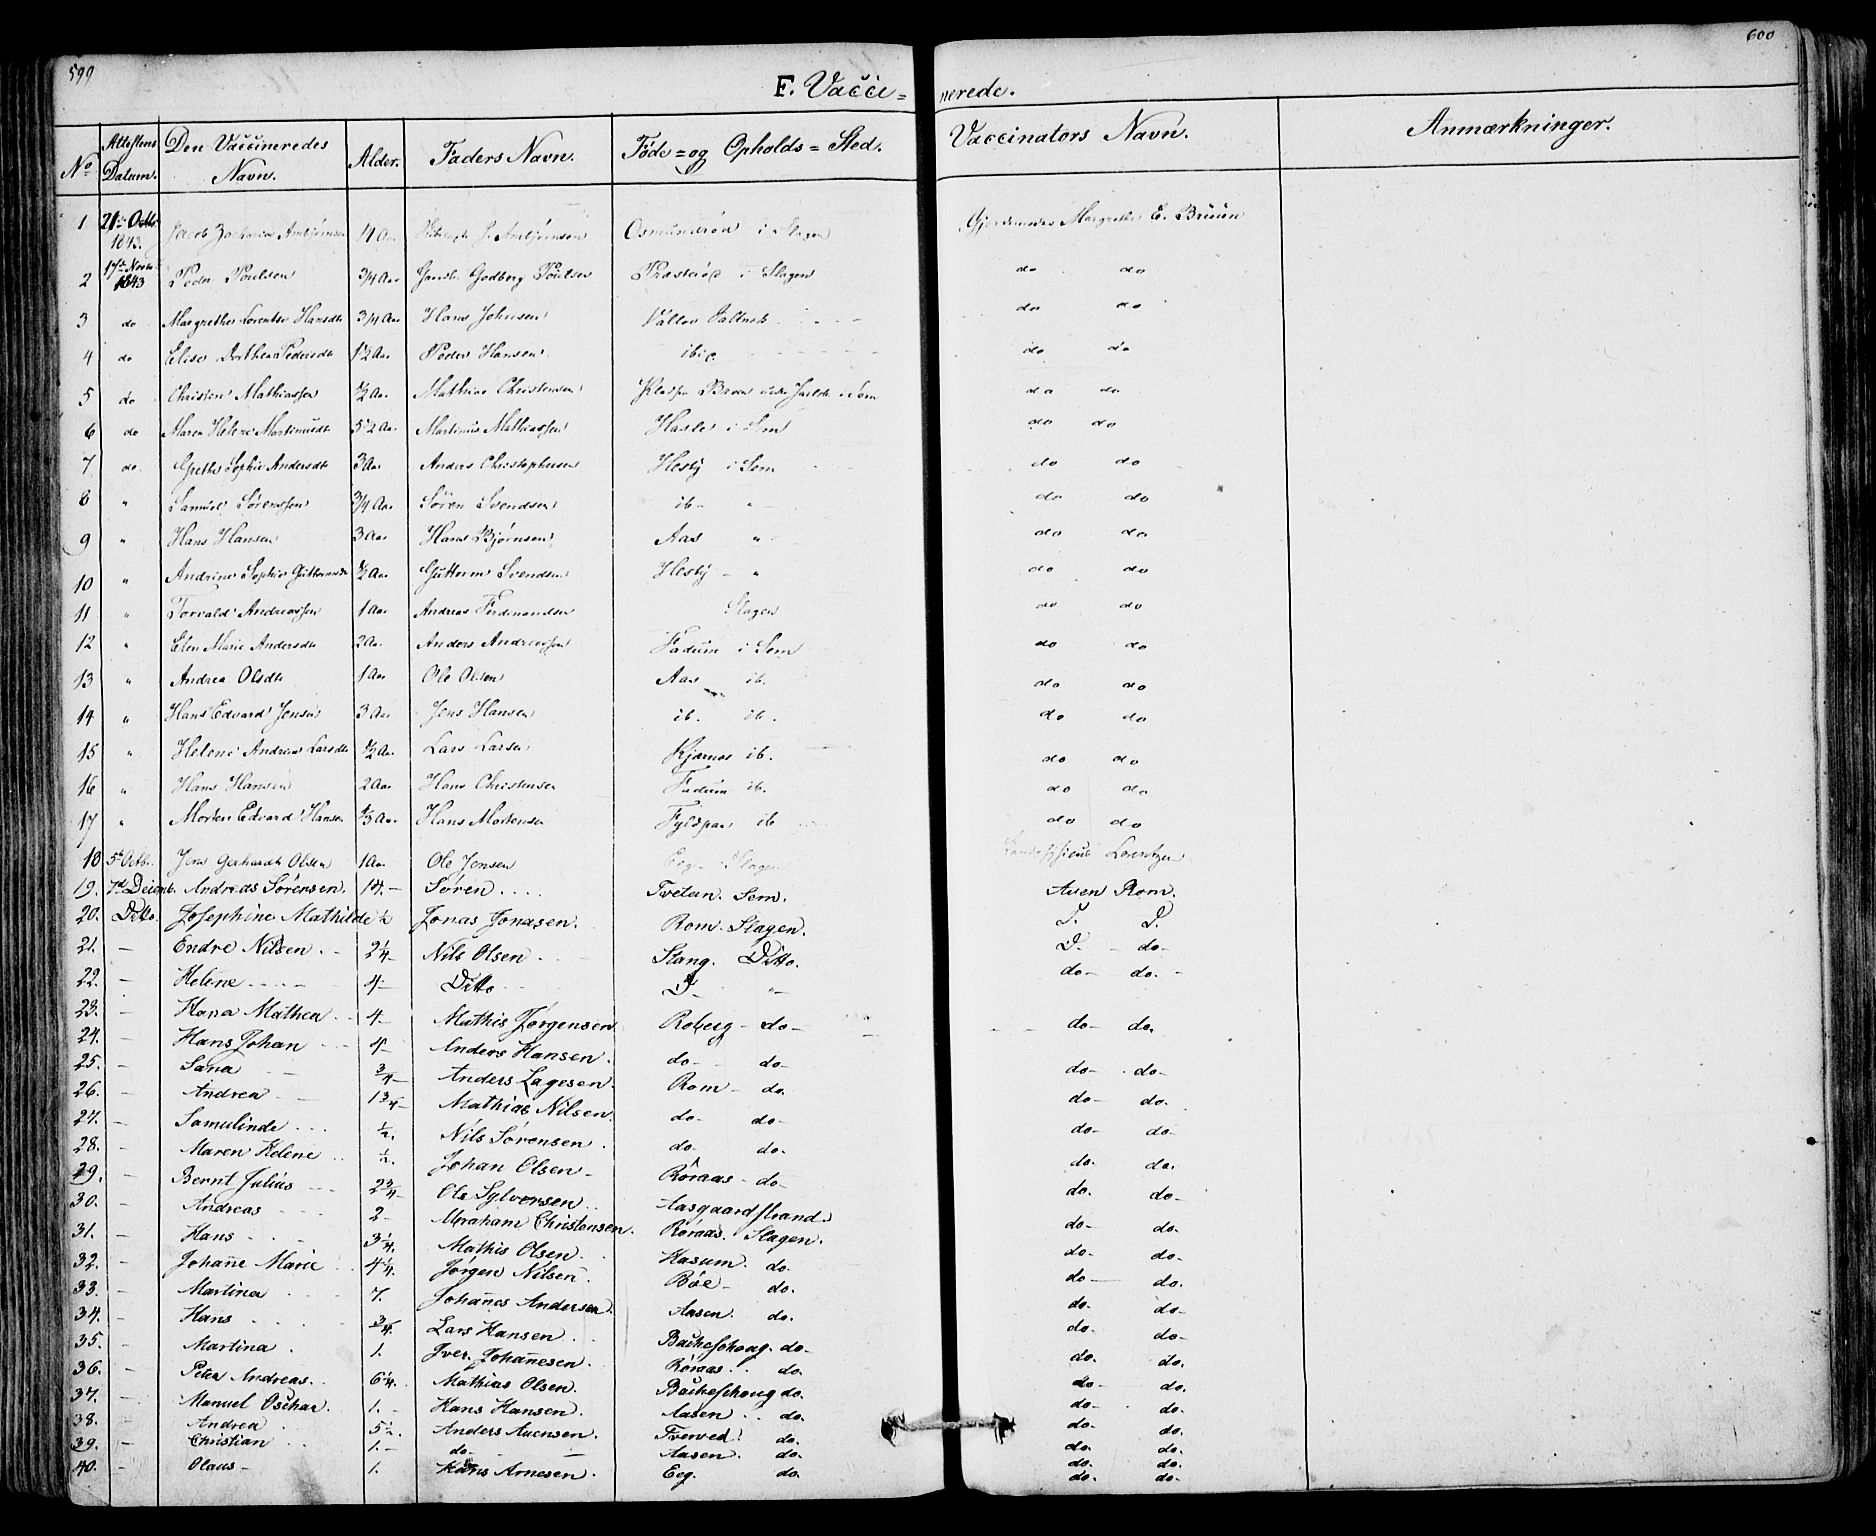 599
600
F. Vacci=nerede.
No Attestens Datum. Den Vaccineredes Navn. Alder. Faders Navn. Føde=og Opholds=Sted. Vaccinators Navn. Anmærkninger.
1 21de Octbr. 1843. Jacob Zacharias Ambjørnsen J. Ambjørnsen Osmundrød i Slagen Gjordemoder Margrethe E. Bruun
2 17de Novbr 1843 Peder Poulsen 3/4 Aar Godberg Poulsen i Slagen do do
3 do Margrethe Lorentse Hansdtr 3/4 Aar Hans Johnsen Valløe Saltværk do do
4 do Elise Dorthea Pedersdtr 1½ Aar Peder Hansen ibid do do
5 do Christen Mathiassen ½ Aar Mathias Christensen i Sem do do
6 do Maren Helene Martinusdt 5½ Aar Martinus Mathiassen Hasle i Sem do do
7 do Grethe Sophie Andersdt 3 Aar Anders Christophersen Hesby i Sem do do
8 " Samuel Sørenssen 3/4 Aar Søren Svendsen ib - " - do do
9 " Hans Hansen 3 Aar Hans Bjørnsen Aas " do do
10 " Andrine Sophie Guttormsdt ½ Aar Guttorm Svendsen Hesby - " do do
11 " Torvald Andreassen 1 Aar Andreas Ferdinandsen Slagen do do
12 " Elen Marie Andersdt 2 Aar Anders Andreassen Fadum i Sem do do
13 " Andrea Olsdt 1 Aar Ole Olsen Aas ib. do do
14 " Hans Edvard Jensen 3 Aar Jens Hansen ib. ib. do do
15 " Helene Andrine Larsdt ½ Aar Lars Larsen Kjærnes ib. do do
16 " Hans Hansen 2 Aar Hans Christensen Fadum ib. do do
17 " Morten Edvard Hansen Hans Mortensen Fyldpaa ib do do
18 5te Octb. Jens Gerhardt Olsen 1 Aar Ole Jensen Eeg - i Slagen Lorentzen
19. 7d Decemb. Andreas Sørensen. 14.- Søren.... Tvetan. Sem. Auen Rom.
20. Ditto. Josephine Mathilde ½ Jonas Jonasen. Rom. Slagen. D. D.
21. - Endre Nilsen. - 2¼ Nils Olsen Slang. Ditto. D. - do-
22. - Helene - - - - 4- Ditto D- "- do- do. -
23. - Hana Mathea 4- Mathis Jørgensen Roberg - do- do- do.
24. - Hans Johan 4- Anders Hansen. do- do- do- do-
25. - Sana 3/4- Anders Lagesen. Rom- do. do- do.
26. - Andrea 1¾- Mathias Nilsen. do- do- do- do-
27. - Samulinde... ½. Nils Sørensen. do- do- do. do.
28. - Maren Helene.. ½. Johan Olsen- Røraas- do- do. do-
29. - Bernt Julius 2¾- Ole Sylversen.. Aasgaardstrand. do- do.
30. - Andreas 2- Abraham Christensen. Røraas. Slagen. do- do-
31. - Hans 3¼. Mathis Olsen. Hasum. do. do- do.
32. - Johanne Marie 4¼. Jørgen Nilsen. Bøe- do. do. do-
33. - Martina 7. Johanes Andersen. Aasen. do. do- do-
34. - Hans 3/4. Lars Hansen. Backeschoug. do- do. do.
35. - Martina. 1. Iver Johanesen. Røraas. do. do- do.
36. - Peter Andreas.. 6¼. Mathias Olsen. Backeschoug do. do- do.
37. - Manuel Oschar. 1. - Hans Hansen. Aasen.. do. do- do.
38. - Andrea 5½. Anders Auensen. Tverved. do. do- do.
39. - Christian.. 1.- do- - Aasen. do. do. do.
40. - Olaus- 1. Hans Arnesen. Eeg. do. do. do-